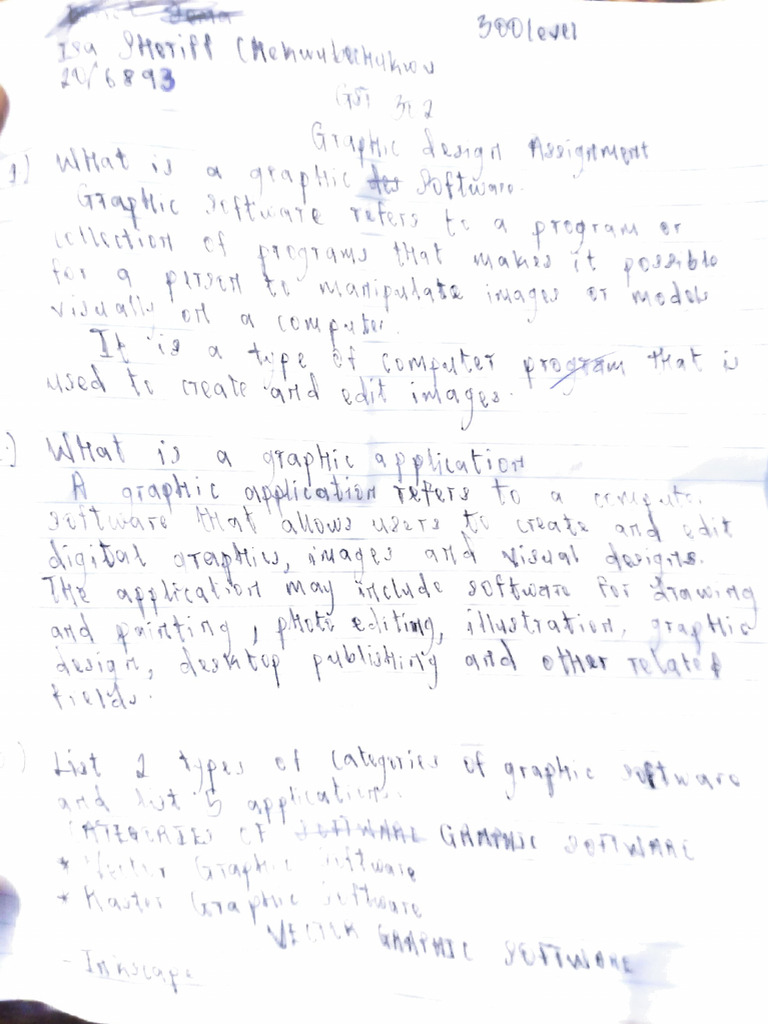 300 level
Isu Sheriff Chekwubechukwu
20/6893
GST 302
Graphic design Assignment
1) What is a graphic software.
Graphic software refers to a program or
collection of programs that makes it possible
for a person to manipulate images or models
visually on a computer.
It is a type of computer program that is
used to create and edit images.
What is a graphic application
A graphic application refers to a compute
software that allows users to create and edit
digital graphics, images and visual designs.
The application may include software for drawing
and painting, photo editing, illustration, graphic
design, desktop publishing and other related
fields.
List 2 types of categories of graphic software
and list 5 applications.
CATEGORIES OF GRAPHIC SOFTWARE
* Vector Graphic Software
* Raster Graphic Software
VECTOR GRAPHIC SOFTWARE
- Inkscape